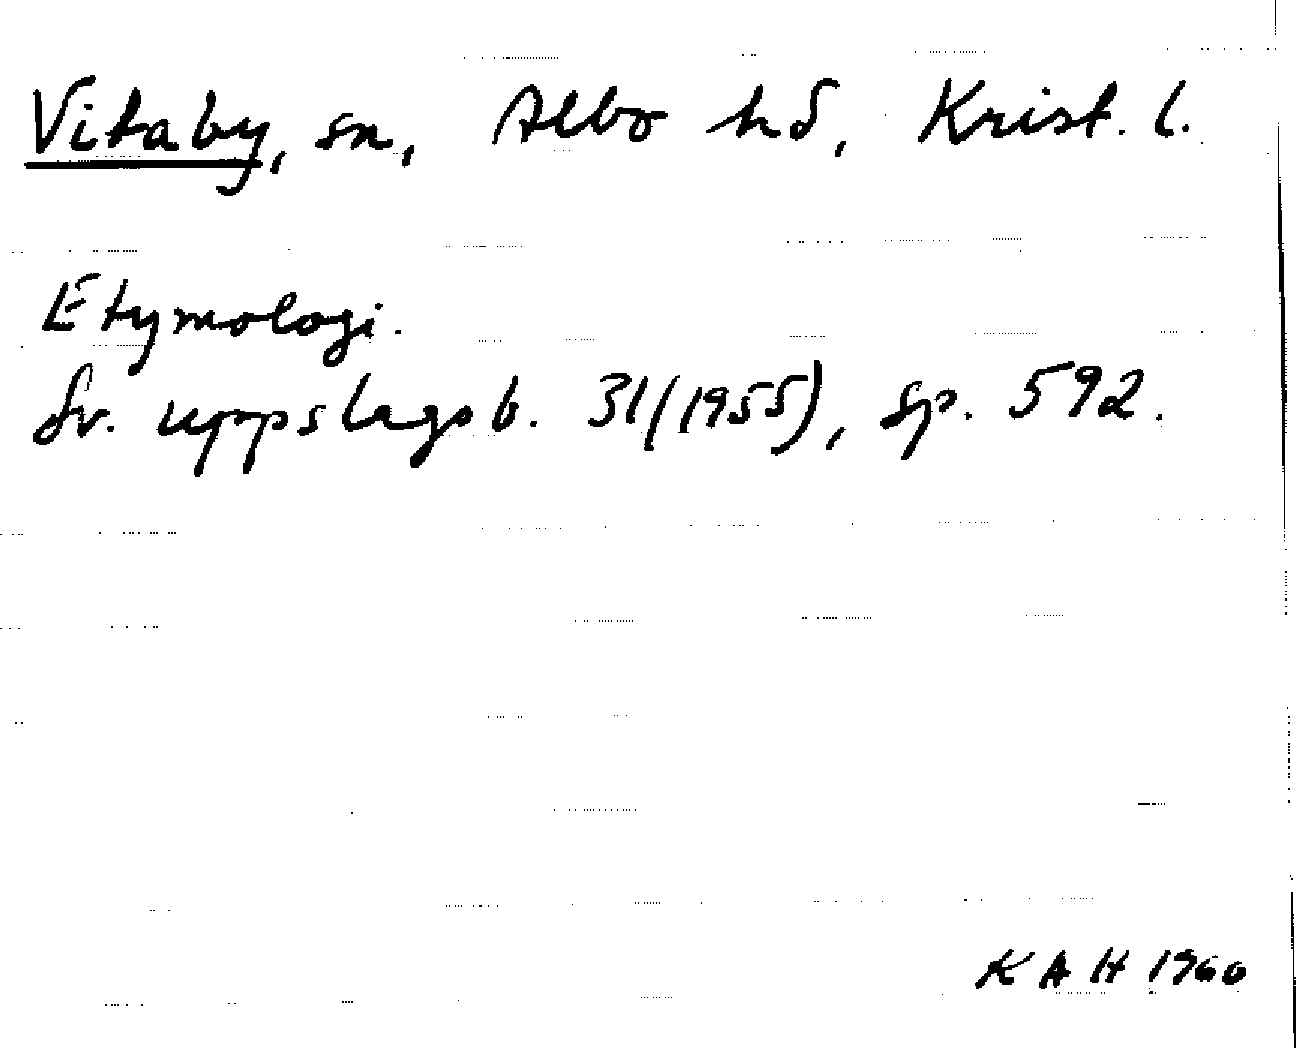 Vitaby, sn, Albo hd, Krist. l.
Etymologi.
Sv. uppslagsb. 31(1955), sp. 592.
KAH 1960